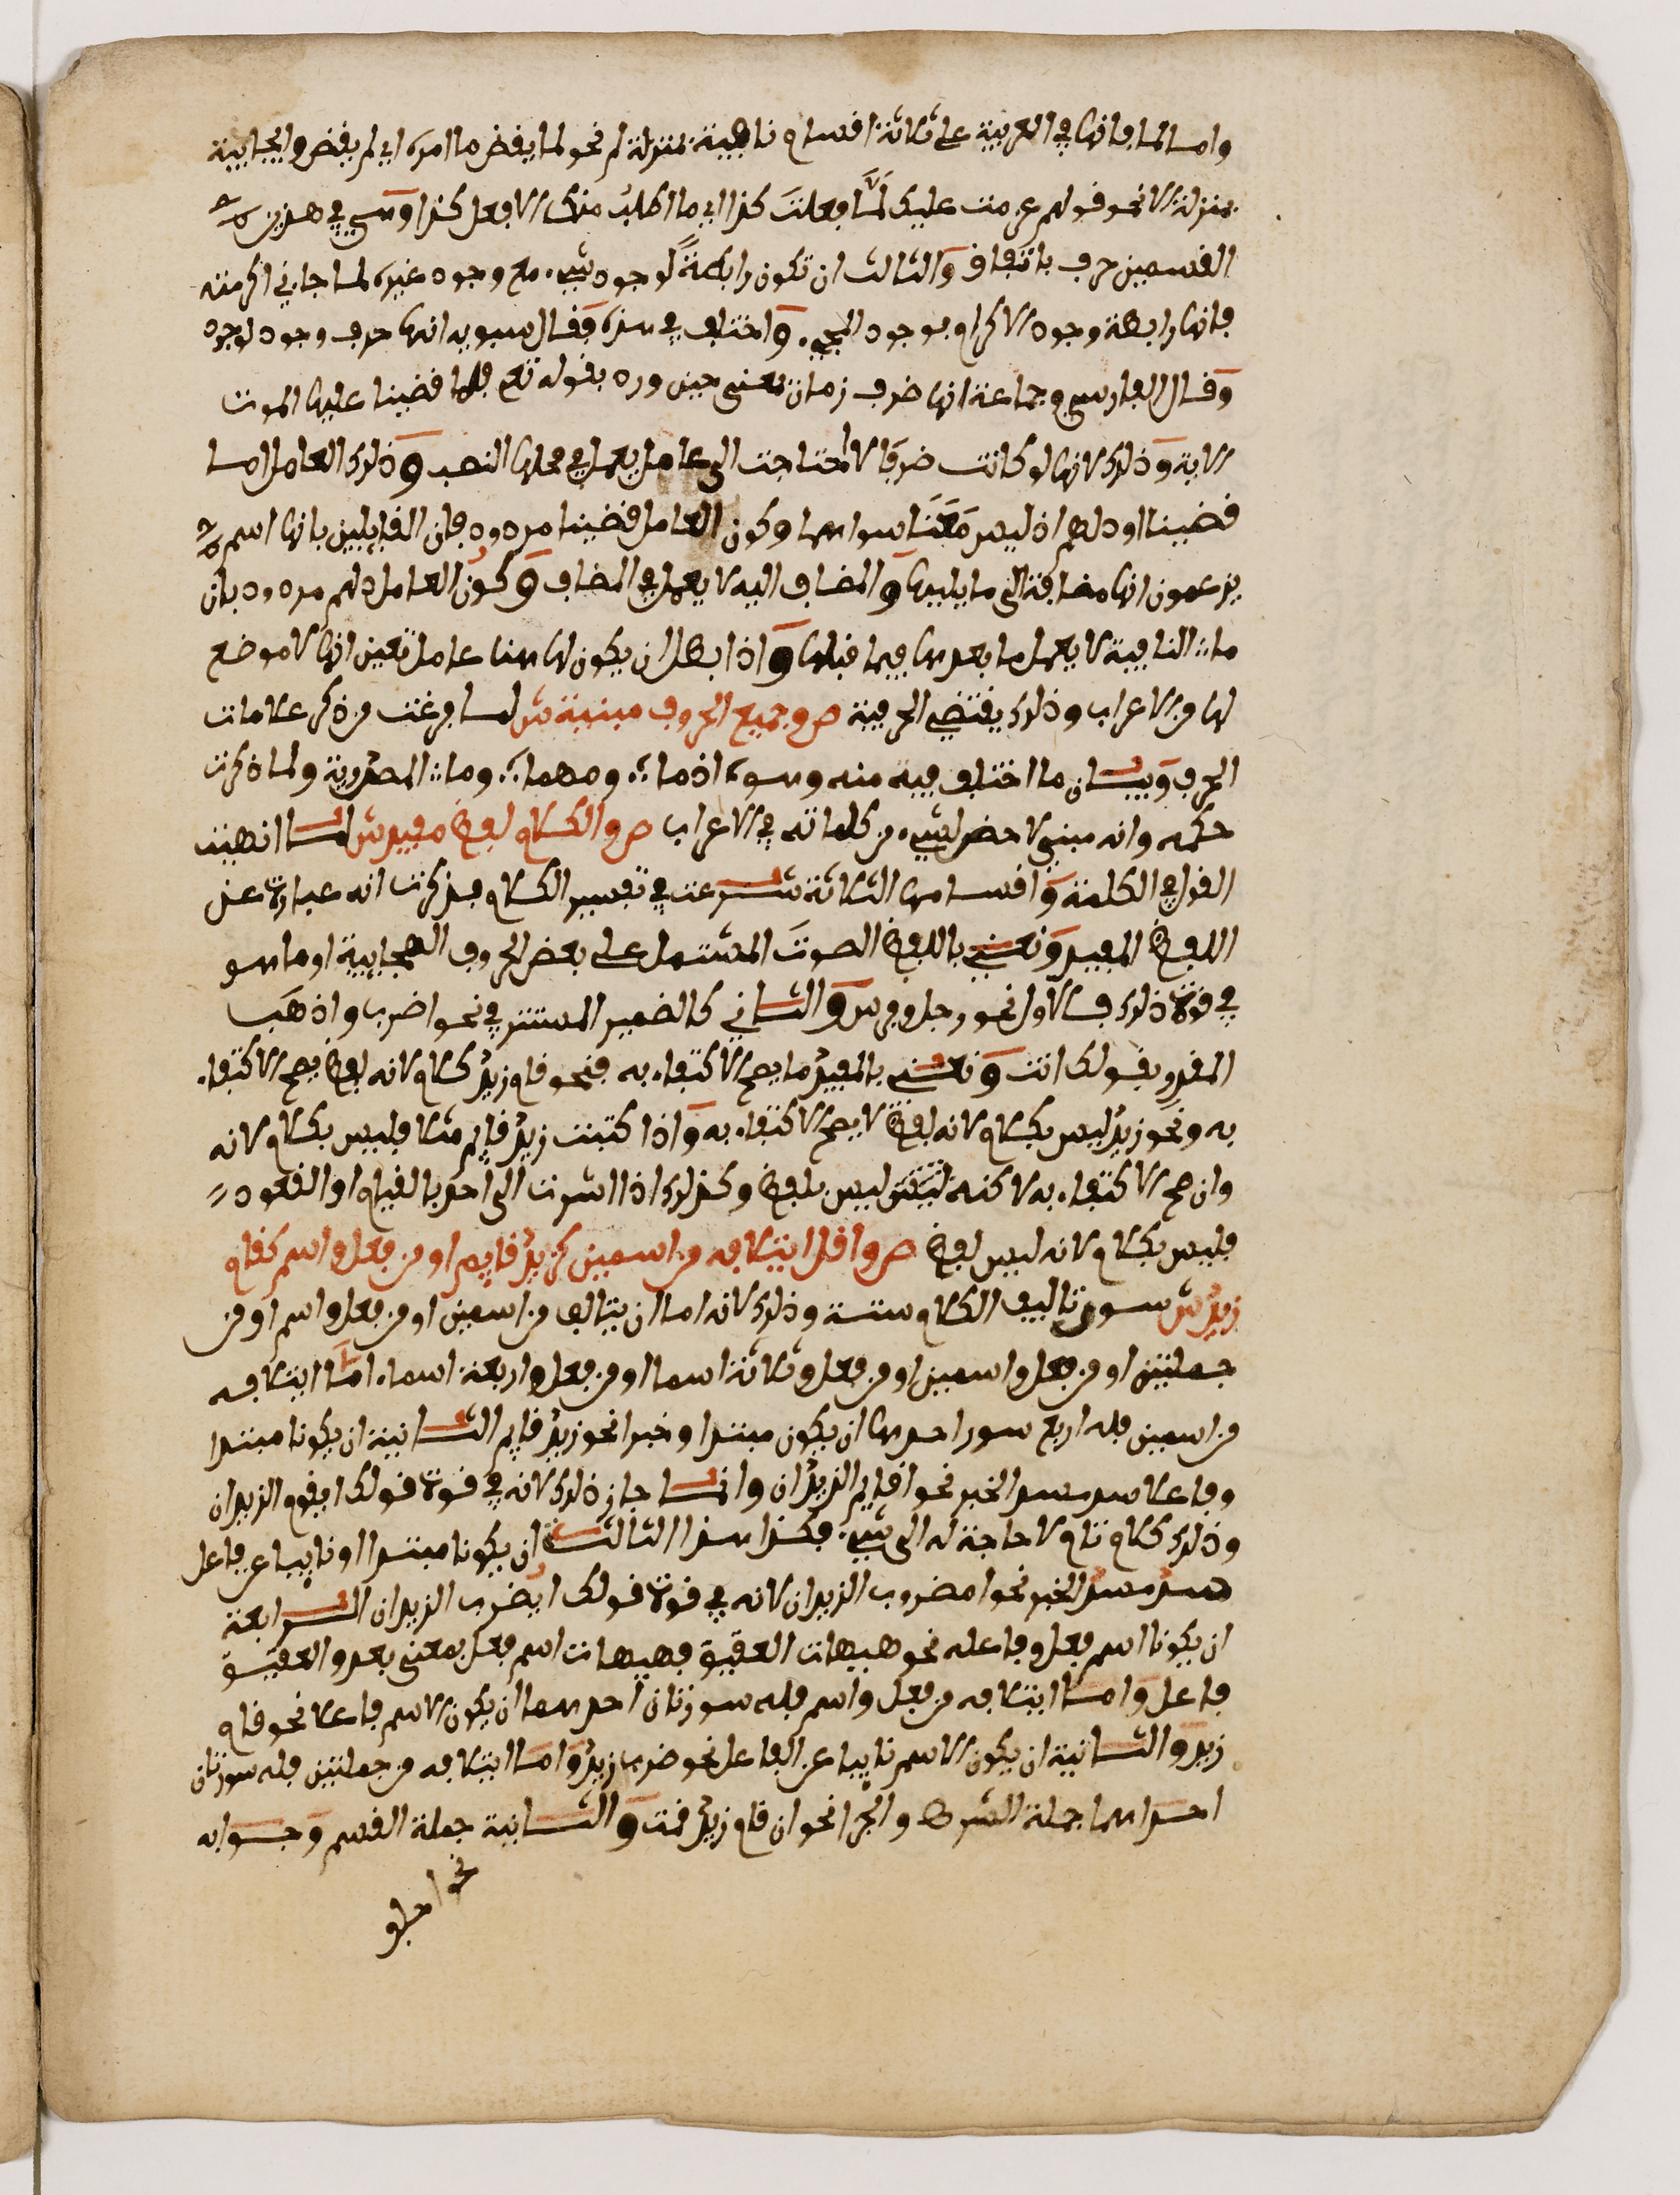 واما لما فانها في العربية على ثلاثة اقسام نافية بمنزلة لم نحو لما يقض ما امره اي لم يقض وايجابية
بمنزلة الا نحو قولهم عزمت عليك لمّا فعلت كذا اي ما اطلب منك الا فعل كذا وهي في هذين
القسمين حرف باتفاق والثالث ان تكون رابطةً لوجود شيء مع وجود غيره لما جاءني اكرمته
فانها رابطة وجود الاكرام بوجود المجيء واختلف في هذه فقال سيبويه انها حرف وجود لوجود
وقال الفارسي وجماعة انها ضرف زمان بمعنى حين ورد بقوله تعلى فلما قضينا عليها الموت
الاية وذلك لانها لو كانت ضرفا لاحتاجت الى عامل يعمل في محلها النصب وذلك العامل اما
قضينا او دلهم اذ ليس مَعَنا سواهما وكون العامل قضينا مردود فان القايلين بانها اسم
يزعمون انها مضافة الى ما يليها والمضاف اليه لا يعمل في المضاف وكون العامل دلهم مردود بان
ما النافية لا يعمل ما بعدها فيما قبلها واذا بطل ان يكون لها هنا عامل تعين انها لا موضع
لها من الاعراب وذلك يقتضي الحرفية ص وجميع الحروف مبنية ش لما فرغت من ذكر علامات
الحرف وبيان ما اختلف فيه منه وهو اذما ومهما وما المصدرية ولما ذكرت
حكمه وانه مبني لا حض لشيء من كلماته في الاعراب ص والكلام لفظ مفيد ش لما انهيت
القول في الكلمة واقسامها الثلاثة شرعت في تفسير الكلام فذكرت انه عبارة عن
اللفظ المفيد ونعني باللفظ الصوتَ المشتمل على بعض الحروف الهجايية او ما هو
في قوة ذلك فالاول نحو رجل وفرس والثاني كالضمير المستتر في نحو اضرب واذهَب
المقدر بقولك انت ونعني بالمفيد ما يصح الاكتفاء به فنحو قام زيد كلام لانه لفظ يصح الاكتفاء
به ونحو زيد ليس بكلام لانه لفظ لا يصح الاكتفاء به واذا كتبت زيد قايم مثلا فليس بكلام لانه
وان صح الاكتفاء به لاكنه ليس بلفظ وكذلك اذا اشرت الى احد بالقيام او القعود
فليس بكلام لانه ليس لفظ ص واقل ايتلافه من اسمين كزيد قايم او من فعل واسم كقام
زيد ش سور تاليف الكلام ستة وذلك لانه اما ان يتالف من اسمين او من فعل واسم او من
جملتين او من فعل واسمين او من فعل وثلاثة اسما او من فعل واربعة اسماء اما ايتلافه
من اسمين فله اربع سور احدها ان يكون مبتدا وخبرا نحو زيد قايم الثانية ان يكونا مبتدا
وفاعلا سد مسد الخبر نحو اقايم الزيدان وانما جاز ذلك لانه في قوة قولك ايقوم الزيدان
وذلك كلام تام لا حاجة له الى شيء فكذا هذا الثالثة ان يكونا مبتدا او نايبا عن فاعل
سد مسد الخبر نحو امضروب الزيدان لانه في قوة قولك ايُضرب الزيدان الرابعة
ان يكونا اسم فعل وفاعله نحو هيهات العقيق فهيهات اسم فعل بمعنى بعد والعقيق
فاعل واما ايتلافه من فعل واسم فله سورتان احدهما ان يكون الاسم فاعلا نحو قام
زيد والثانية ان يكون الاسم نايبا عن الفاعل نحو ضرب زيد واما ايتلافه من جملتين فله سورتان
احداهما جملة الشرط والجزا نحو ان قام زيد قمت والثانية جملة القسم وجوابه
نحو احلف